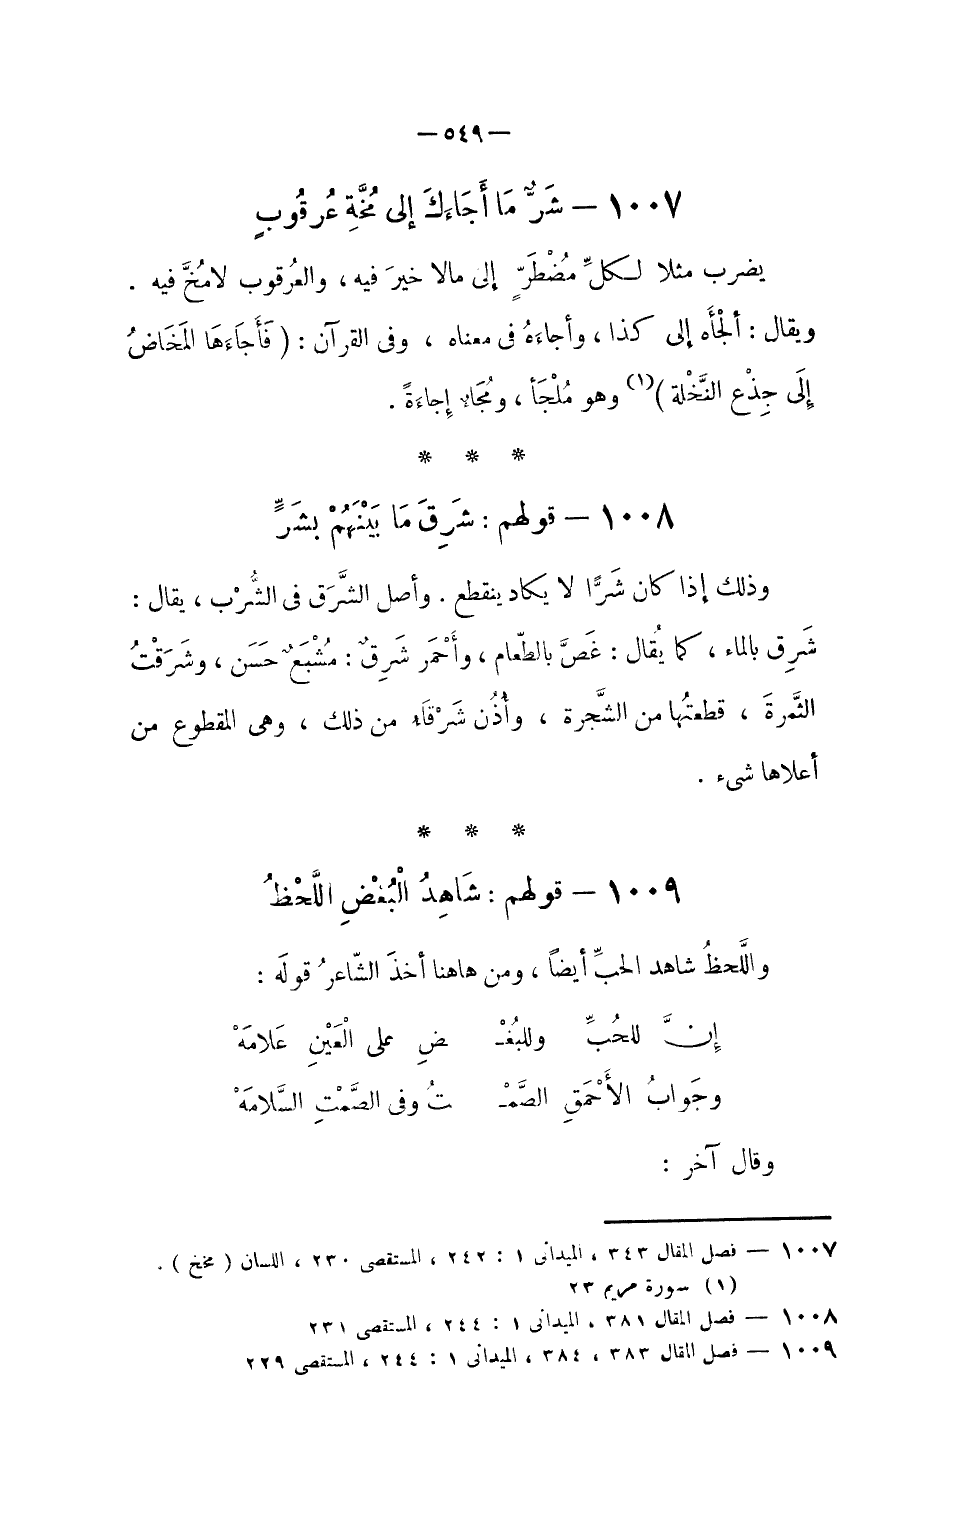 — ٥٤٩ —
١٠٠٧ — شَرٌّ مَا أَجَاءَكَ إلى مُخَّةِ عُرقُوبٍ
يضرب مثلا لكلِّ مُضْطَرٍّ إلى مالا خيرَ فيه ، والعُرقوب لامُخَّ فيه .
ويقال : ألْجأَه إلى كذا ، وأجاءَهُ فى معناه ، وفى القرآن : ( فَأَجَاءَهَا المَخَاضُ
إِلَى جِذْعِ النَّخْلة )(١) وهو مُلْجَأ ، ومُجَاء إجاءَةً .
* * *
١٠٠٨ — قولهم : شَرِقَ مَا بَيْنَهُمْ بشَرٍّ
وذلك إذا كان شَرًّا لا يكاد ينقطع . وأصل الشَّرَق فى الشُّرْب ، يقال :
شَرِق بالماء ، كما يُقال : غَصَّ بالطّعام ، وأَحْمَر شَرِقٌ : مُشْبَعٌ حَسَن ، وشَرَقْتُ
الثَّمرةَ ، قطعتُها من الشَّجرة ، وأُذُن شَرْقَاء من ذلك ، وهى المقطوع من
أعلاها شىء .
* * *
١٠٠٩ — قولهم : شَاهِدُ الْبُغْضِ اللَّحْظُ
واللَّحظُ شاهد الحبِّ أيضاً ، ومن هاهنا أخذَ الشّاعرُ قولَه :
إِنَّ للحُبِّ وللبُغْـ ـضِ على الْعَيْنِ عَلامَهْ
وجَوابُ الأَحْمَقِ الصَّمْـ ـتُ وفى الصَّمْتِ السَّلامَهْ
وقال آخر :
١٠٠٧ — فصل المقال ٣٤٣ ، الميدانى ١ : ٢٤٢ ، المستقصى ٢٣٠ ، اللسان ( مخخ ) .
(١) سورة مريم ٢٣
١٠٠٨ — فصل المقال ٣٨١ ، الميدانى ١ : ٢٤٤ ، المستقصى ٢٣١
١٠٠٩ — فصل المقال ٣٨٣ ، ٣٨٤ ، الميدانى ١ : ٢٤٤ ، المستقصى ٢٢٩